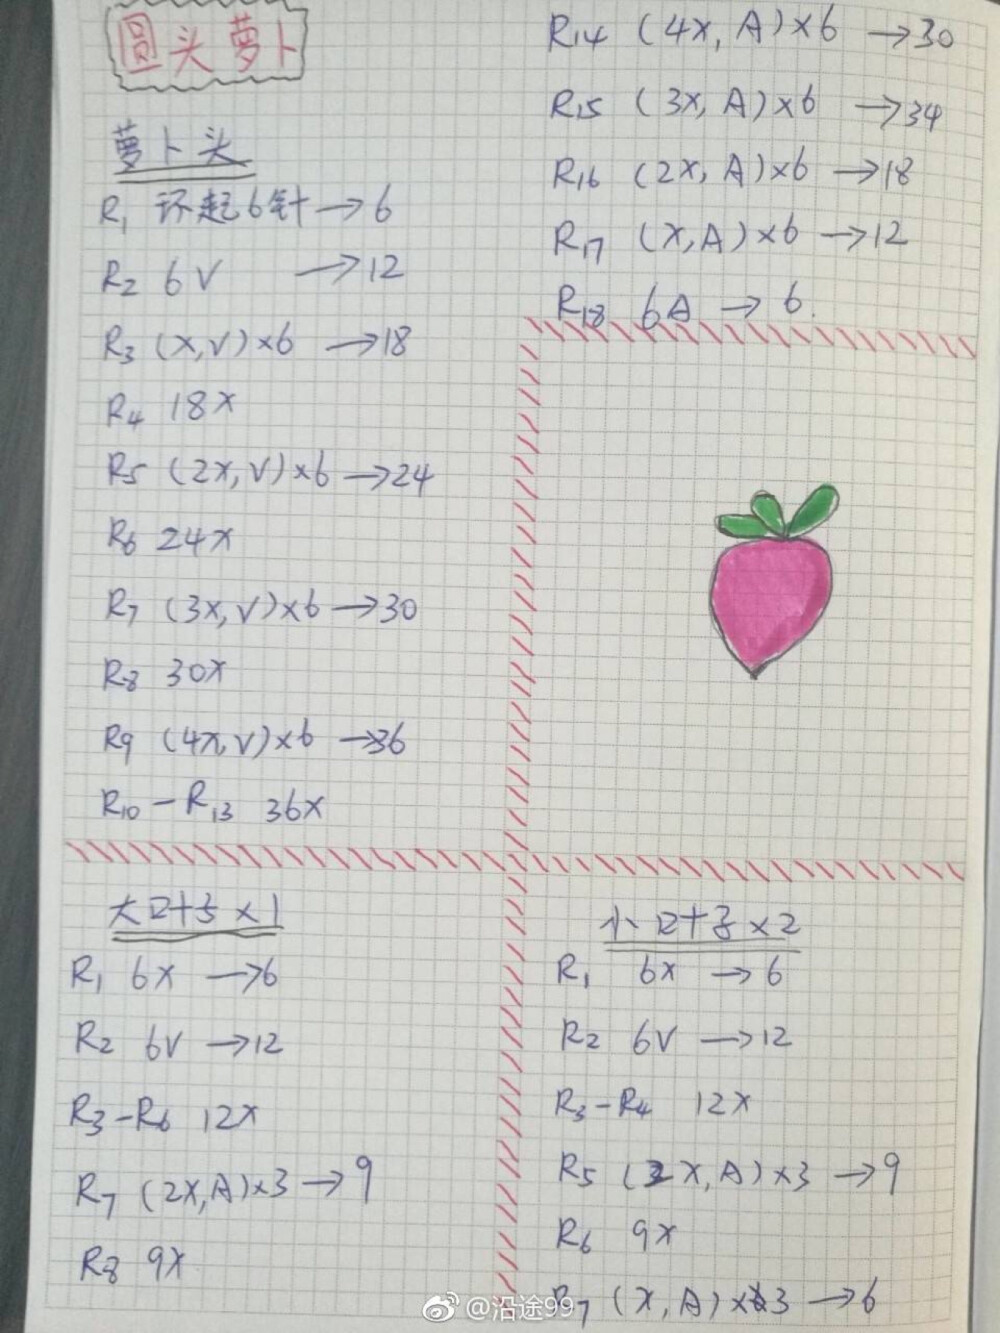 圆头萝卜
萝卜头
R1 环起6针→6
R2 6V →12
R3 (X,V)×6 →18
R4 18X
R5 (2X,V)×6→24
R6 24X
R7 (3X,V)×6→30
R8 30X
R9 (4X,V)×6 →36
R10-R13 36X
R14 (4X,A)×6 →30
R15 (3X,A)×6 →34
R16 (2X,A)×6→18
R17 (X,A)×6→12
R18 6A → 6.
大叶子×1
R1 6X →6
R2 6V →12
R3-R6 12X
R7 (2X,A)×3→9
R8 9X
小叶子×2
R1 6X →6
R2 6V →12
R3-R4 12X
R5 (2X,A)×3 →9
R6 9X
R7 (X,A)×3 →6
@沿途99